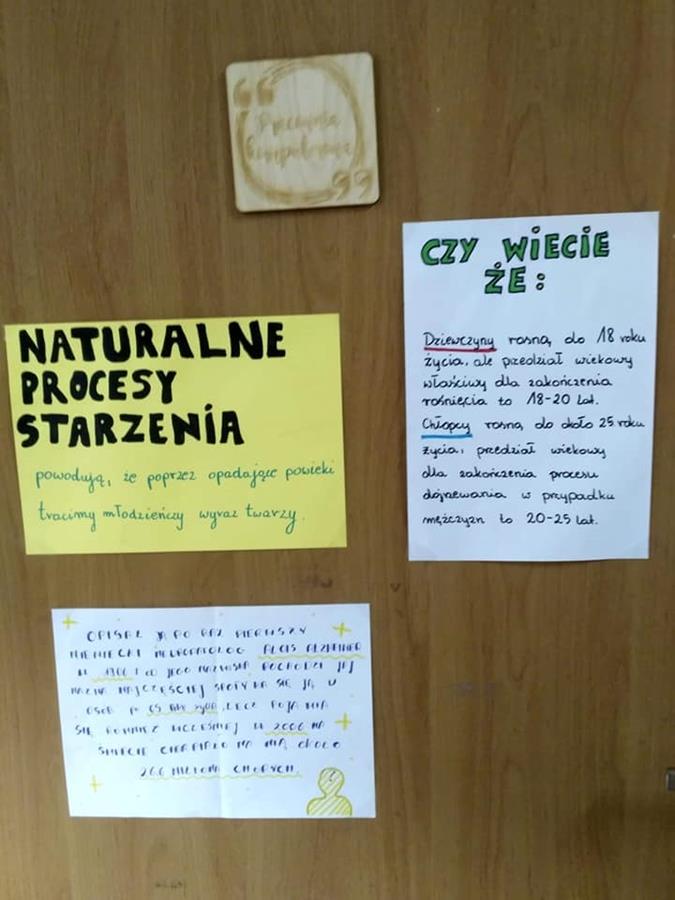 CZY WIECIE
ŻE:
Dziewczyny rosną do 18 roku
życia, ale przedział wiekowy
właściwy dla zakończenia
rośnięcia to 18-20 lat.
Chłopcy rosną do około 25 roku
życia, przedział wiekowy
dla zakończenia procesu
dojrzewania w przypadku
mężczyzn to 20-25 lat.
NATURALNE
PROCESY
STARZENIA
powodują, że poprzez opadające powieki
tracimy młodzieńczy wyraz twarzy.
OPISAŁ JĄ PO RAZ PIERWSZY
NIEMIECKI NEUROPATOLOG ALOIS ALZHEIMER
W 1906 I OD JEGO NAZWISKA POCHODZI JEJ
NAZWA NAJCZĘŚCIEJ SPOTYKA SIĘ JĄ U
OSÓB PO 65 ROKU ŻYCIA, LECZ POJAWIA
SIĘ RÓWNIEŻ WCZEŚNIEJ W 2006 NA
ŚWIECIE CIERPIAŁO NA NIĄ OKOŁO
26.6 MILIONA CHORYCH.